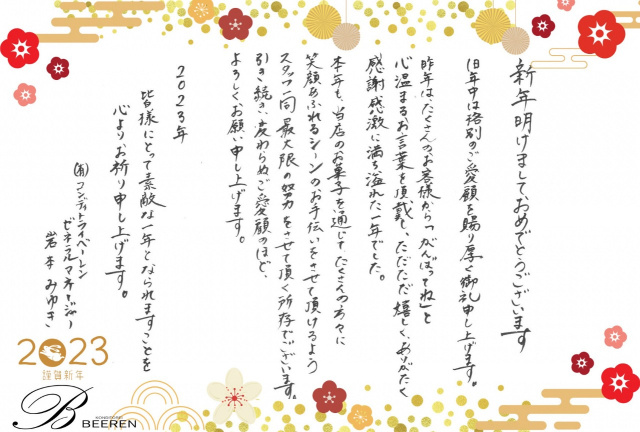 新年明けましておめでとうございます
旧年中は格別のご愛顧を賜り厚く御礼申し上げます。
昨年は、たくさんのお客様から「がんばってね」と
心温まるお言葉を頂戴し、ただただ嬉しく、ありがたく
感謝感激に満ち溢れた一年でした。
本年も、当店のお菓子を通じてたくさんの方々に
笑顔あふれるシーンのお手伝いをさせて頂けるよう
スタッフ一同 最大限の努力をさせて頂く所存でございます。
引き続き、変わらぬご愛顧のほど、
よろしくお願い申し上げます。
2023年
皆様にとって素敵な一年となられますことを
心よりお祈り申し上げます。
㈲コンディトライベーレン
ゼネラルマネージャー
岩本みゆき
2023
謹賀新年
B
KONDITOREI
BEEREN